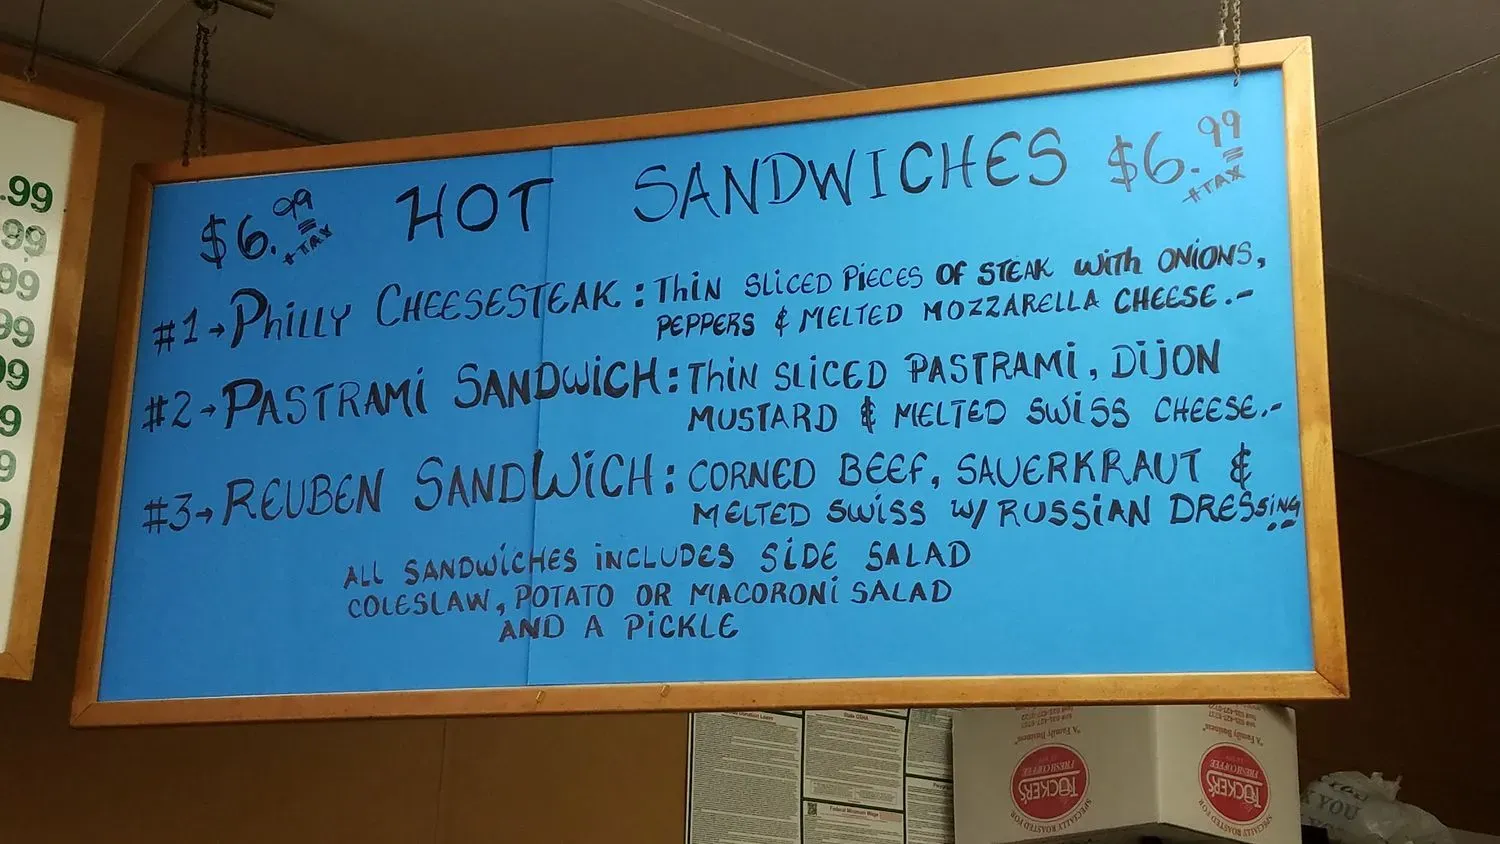 $6.99 +TAX HOT SANDWICHES $6.99 +TAX
#1→PHiLLY CHEESESTEAK: THiN SLiCED PiECES OF STEAK with ONiONS,
PEPPERS & MELTED MOZZARELLA CHEESE.-
#2→PASTRAMi SANDWiCH: THiN SLiCED PASTRAMi, DiJON
MUSTARD & MELTED SWiSS CHEESE.-
#3→REUBEN SANDWiCH: CORNED BEEF, SAUERKRAUT &
MELTED SWiSS W/ RUSSiAN DRESSiNG
ALL SANDWiCHES iNCLUDES SiDE SALAD
COLESLAW, POTATO OR MACORONi SALAD
AND A PiCKLE
.99
.99
99
99
99
9
9
9
State OSHA
Federal Minimum Wage
"A Family Business"
FRESH COFFEE
TOCKER'S
SPECIALLY ROASTED FOR
"A Family Business"
FRESH COFFEE
TOCKER'S
SPECIALLY ROASTED FOR
YOU